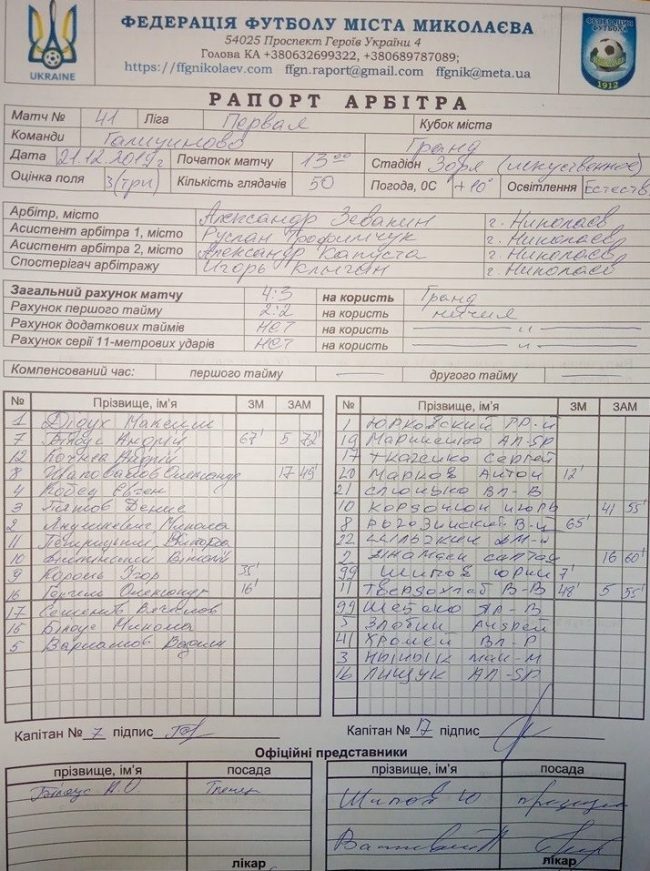 ФЕДЕРАЦІЯ ФУТБОЛУ МІСТА МИКОЛАЄВА
54025 Проспект Героїв України 4
Голова КА +380632699322, +380689787089;
https://ffgnikolaev.com ffgn.raport@gmail.com ffgnik@meta.ua
UKRAINE
ФЕДЕРАЦИЯ ФУТБОЛА
1912
РАПОРТ АРБІТРА
Матч № 41 Ліга Первая Кубок міста
Команди Галициново Гранд
Дата 21.12.2019г Початок матчу 13 00 Стадіон Зоря (искуственное)
Оцінка поля 3(три) Кількість глядачів 50 Погода, 0С +10° Освітлення Естеств
Арбітр, місто Александр Зеванин г. Николаев
Асистент арбітра 1, місто Руслан Трофимчук г. Николаев
Асистент арбітра 2, місто Александр Капуста г. Николаев
Спостерігач арбітражу Игорь г. Николаев
Загальний рахунок матчу 4:3 на користь Гранд
Рахунок першого тайму 2:2 на користь ничия
Рахунок додаткових таймів нет на користь — и —
Рахунок серії 11-метрових ударів нет на користь — и —
Компенсований час: першого тайму — другого тайму —
№ Прізвище, ім'я ЗМ ЗАМ № Прізвище, ім'я ЗМ ЗАМ
1 Дідух Максим 1 Юрковский
7 Білоус Андрій 67' 5 72' 19 АЛ-ЯР
12 Андрій 17 Ткаченко Сергей
8 Шаповалов Олександр 17 49' 20 Марков Антон 12'
4 Євген 21 ВЛ-В
3 Денис 10 41 55'
2 Микола 8 В-й 65'
11 22
10 2 16 60'
9 Король Ігор 35' 99 Шипов Юрий 7'
16 Олександр 16' 11 Твердохлеб В-В 48' 5 55'
17 99 ЯР-В
15 Білоус Микола 5 Злобин Андрей
5 Варламов Вадим 41 Хромей ВЛ-Р
3
16 Лищук АЛ-ЯР
Капітан № 7 підпис Капітан № 17 підпис
Офіційні представники
прізвище, ім'я посада прізвище, ім'я посада
Білоус Тренер Шипов Ю
лікар лікар